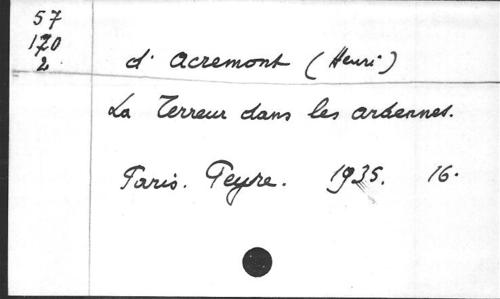 57
170
2.
d' Acremont (Henri)
La Terreur dans les ardennes.
Paris. Peyre. 1935. 16.